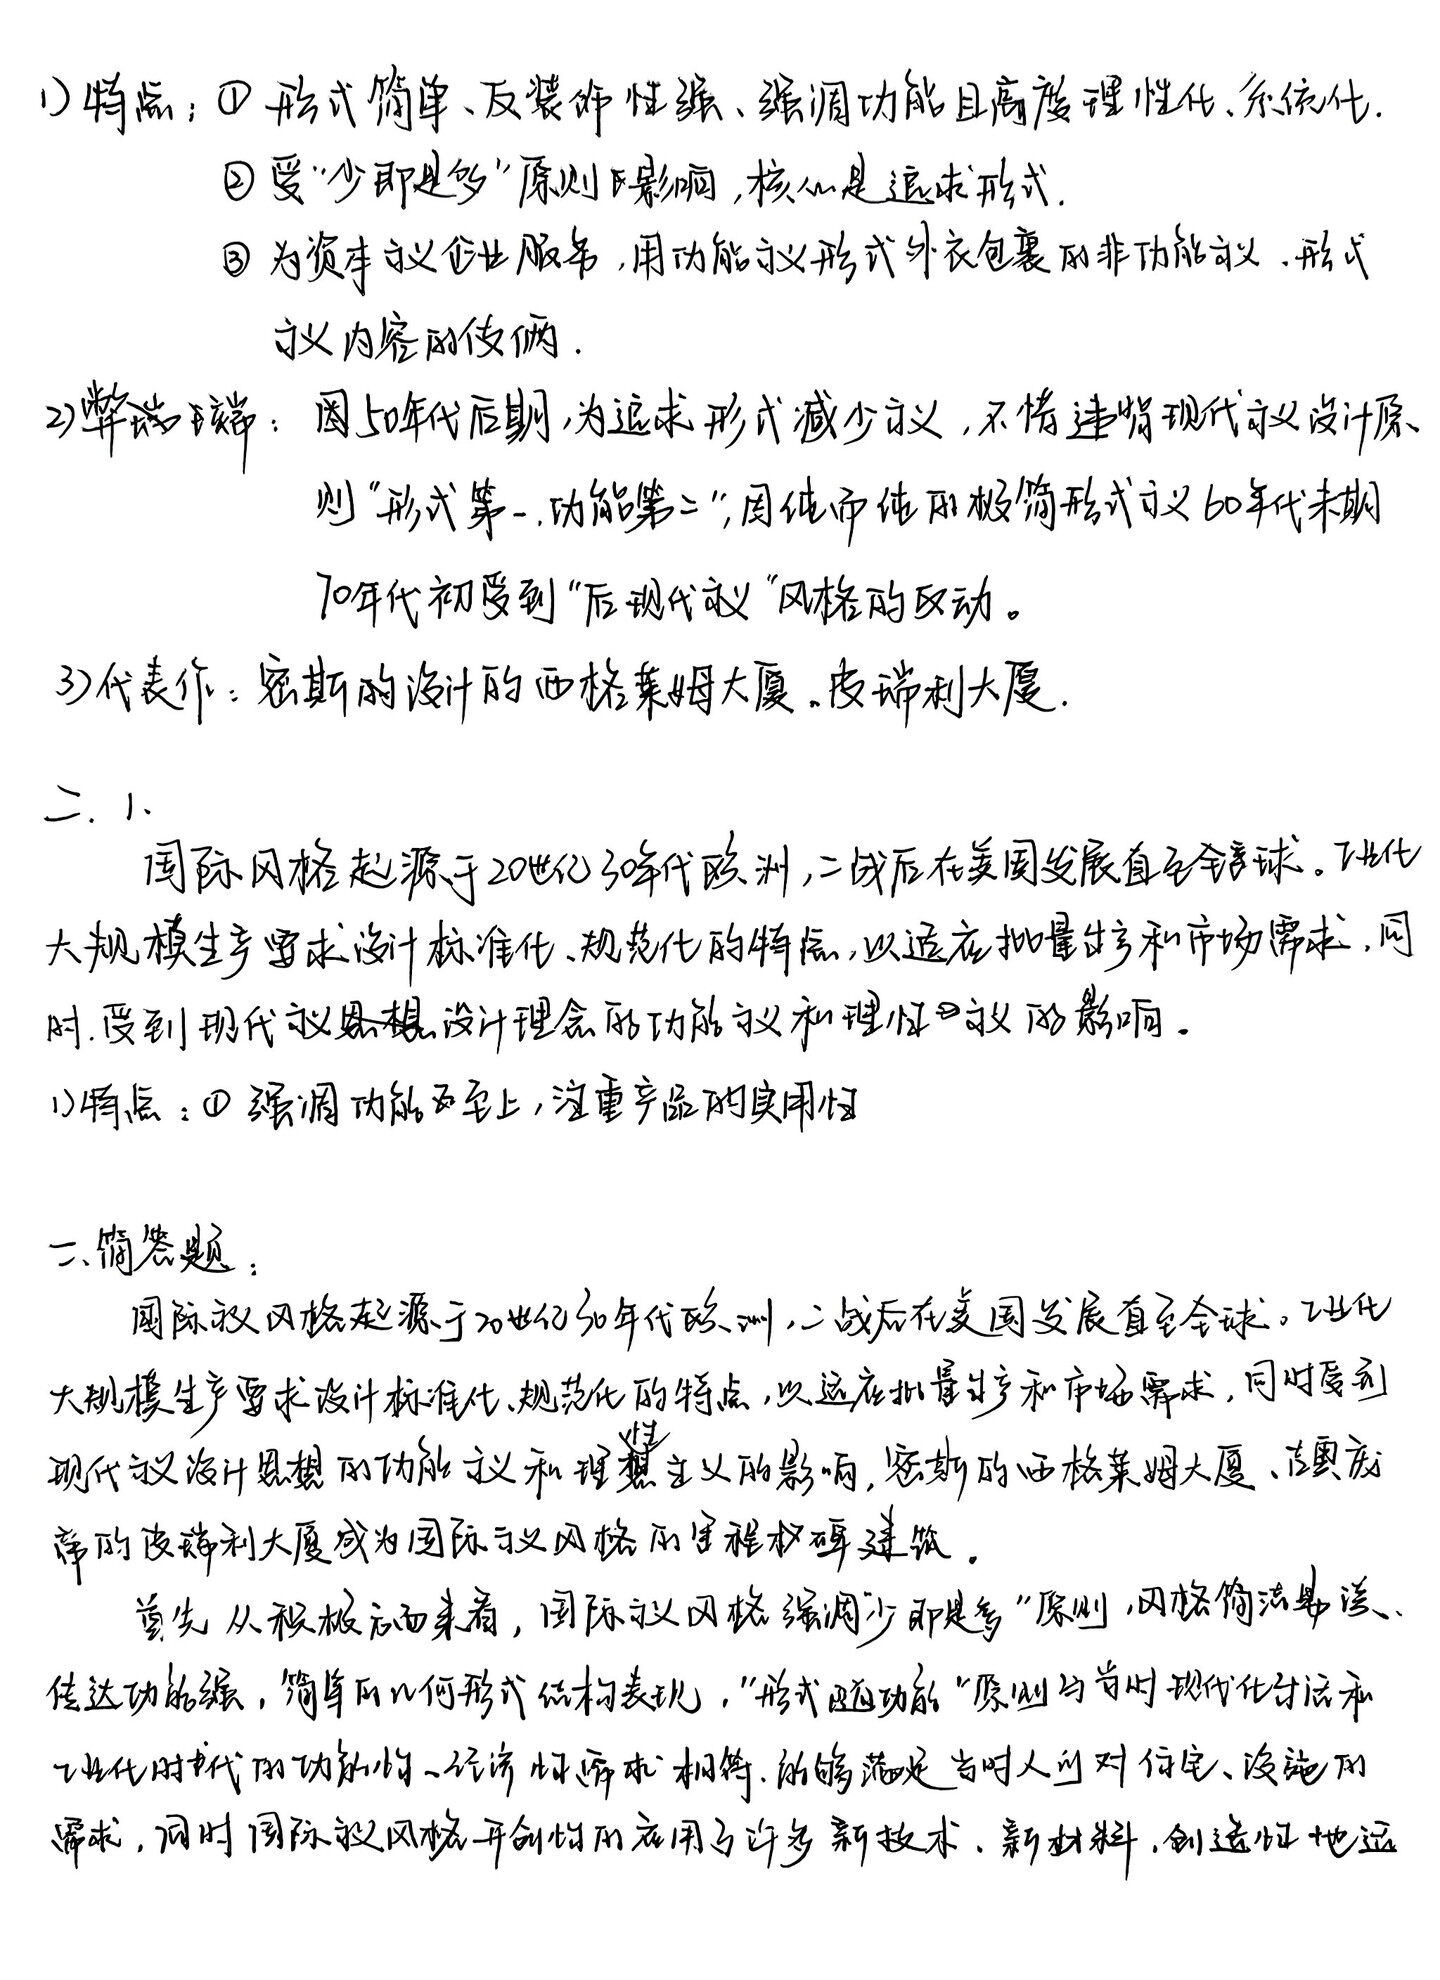 1)特点：① 形式简单、反装饰性强、强调功能且高度理性化、系统化.
② 受“少即是多”原则的影响,核心是追求形式.
③ 为资本主义企业服务,用功能主义形式外衣包裹的非功能主义、形式
主义内容的伎俩.
2)弊端： 因50年代后期,为追求形式减少主义,不惜违背现代主义设计原
则“形式第一、功能第二”,因纯而纯的极简形式主义60年代末期
70年代初受到“后现代主义”风格的反动。
3)代表作：密斯的设计的西格莱姆大厦。皮瑞利大厦.
二. 1.
国际风格起源于20世纪30年代欧洲,二战后在美国发展直至全球。工业化
大规模生产要求设计标准化、规范化的特点,以适应批量生产和市场需求,同
时.受到现代主义设计理念的功能主义和理性主义的影响。
1)特点：① 强调功能至上,注重产品的实用性
一、简答题：
国际主义风格起源于20世纪30年代欧洲,二战后在美国发展直至全球。工业化
大规模生产要求设计标准化、规范化的特点,以适应批量生产和市场需求,同时受到
现代主义设计思想的功能主义和理性主义的影响,密斯的西格莱姆大厦、吉奥庞
帝的皮瑞利大厦成为国际主义风格的里程碑建筑。
首先从积极方面来看,国际主义风格强调“少即是多”原则,风格简洁易读、
传达功能强,简单的几何形式结构表现,“形式追随功能”原则与当时现代化生活和
工业化时代的功能性、经济性需求相符.能够满足当时人们对住宅、设施的
需求,同时国际主义风格开创性的应用了许多新技术、新材料,创造性地运